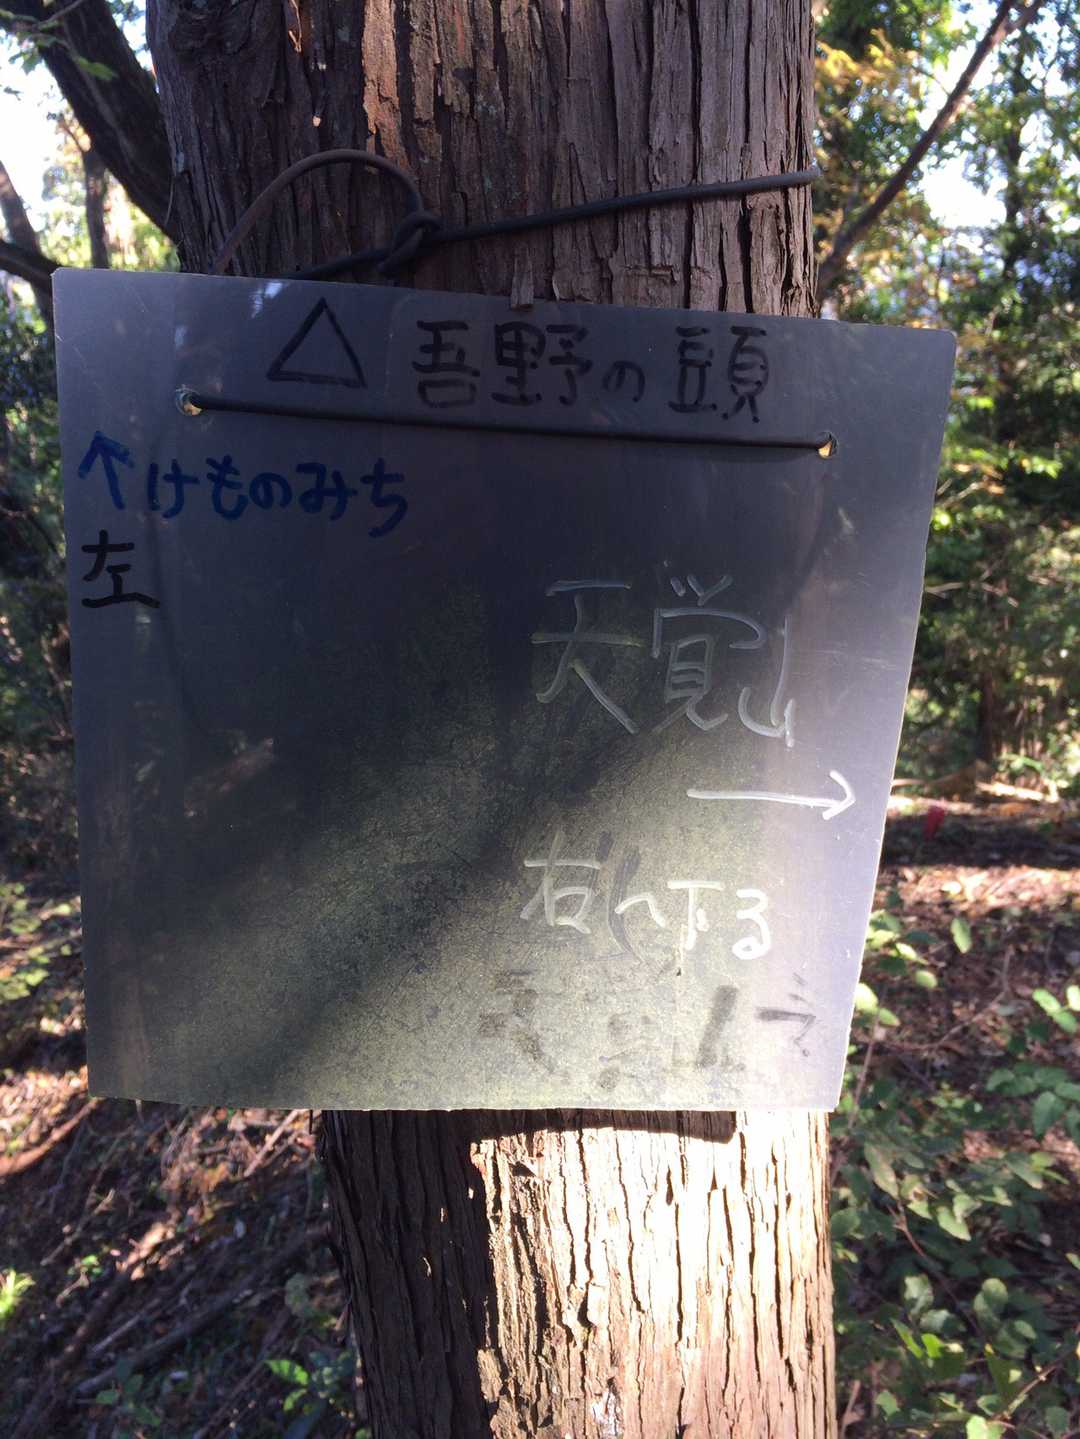 △ 吾野の頭
↑けものみち
左
天覚山
→
右へ下る